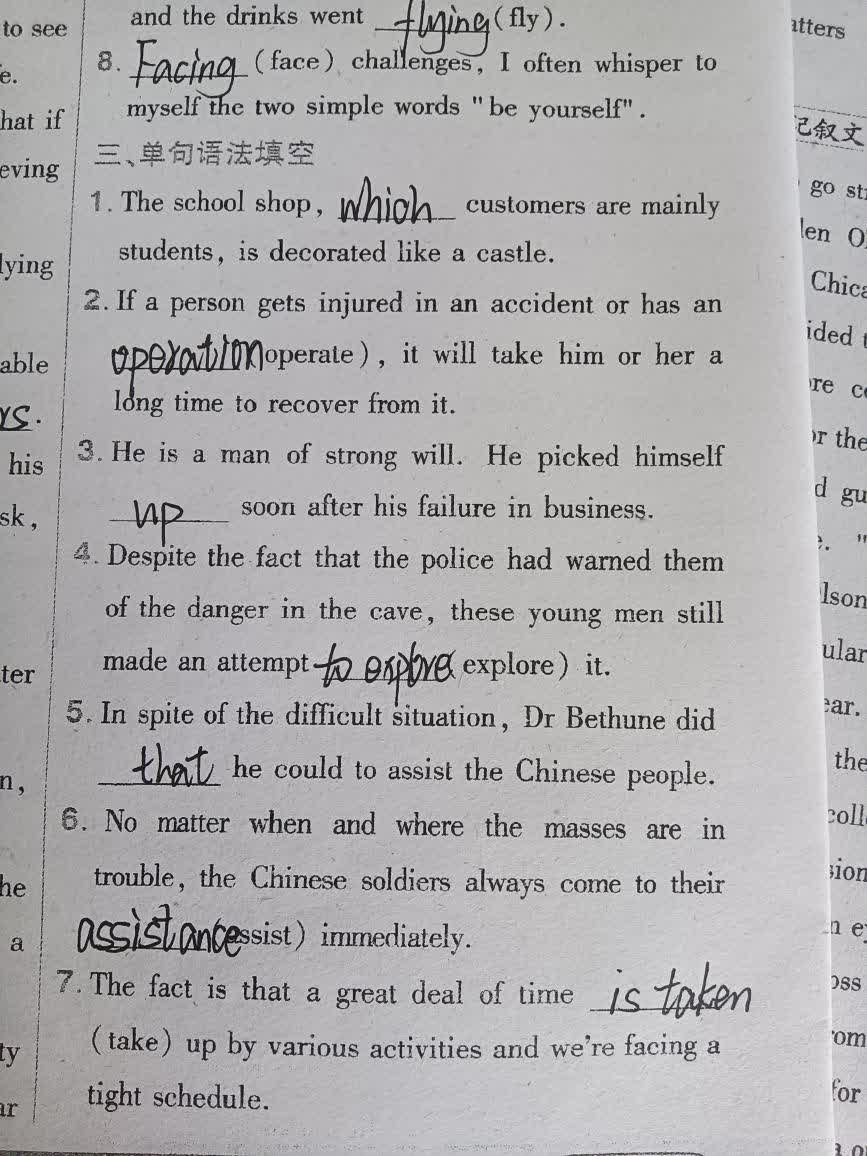 to see
e.
hat if
eving
lying
able
rs.
his
sk,
ter
n,
he
a
ty
ar
and the drinks went flying (fly).
8. Facing (face) challenges, I often whisper to
myself the two simple words "be yourself".
三、单句语法填空
1. The school shop, which customers are mainly
students, is decorated like a castle.
2. If a person gets injured in an accident or has an
operation operate), it will take him or her a
long time to recover from it.
3. He is a man of strong will. He picked himself
up soon after his failure in business.
4. Despite the fact that the police had warned them
of the danger in the cave, these young men still
made an attempt to explore (explore) it.
5. In spite of the difficult situation, Dr Bethune did
that he could to assist the Chinese people.
6. No matter when and where the masses are in
trouble, the Chinese soldiers always come to their
assistance ssist) immediately.
7. The fact is that a great deal of time is taken
(take) up by various activities and we're facing a
tight schedule.
atters
记叙文
go st
len O
Chica
ided t
re c
or the
d gu
e. "
lson
ular
ear.
the
coll
sion
n e
oss
rom
for